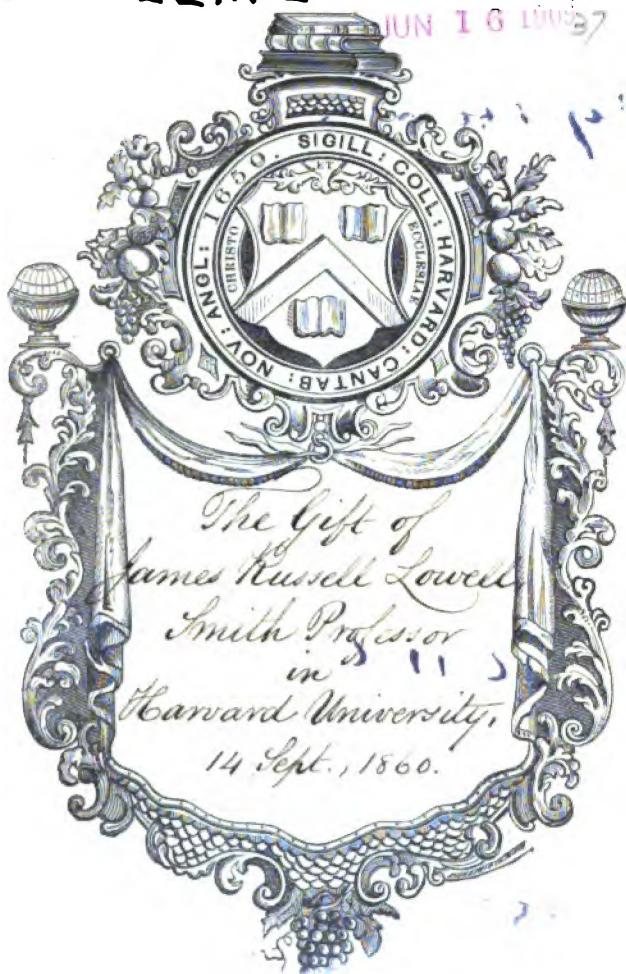 JUN 16 1905
37
SIGILL: COLL: HARVARD: CANTAB: NOV: ANGL: 1650.
ET
CHRISTO
ECCLESIAE
The Gift of
James Russell Lowell,
Smith Professor
in
Harvard University,
14 Sept., 1860.